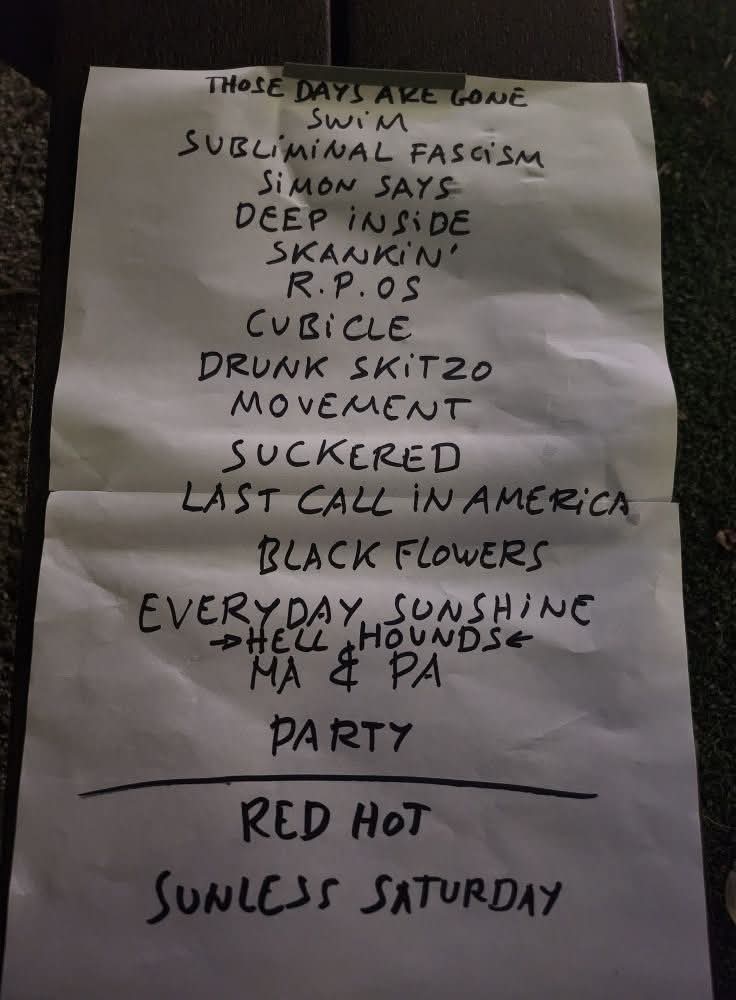 THOSE DAYS ARE GONE
SWiM
SUBLiMiNAL FASCiSM
SiMON SAYS
DEEP iNSiDE
SKANKiN'
R.P.OS
CUBiCLE
DRUNK SKiTZO
MOVEMENT
SUCKERED
LAST CALL iN AMERiCA
BLACK FLOWERS
EVERYDAY SUNSHiNE
→HELL HOUNDS←
MA & PA
PARTY
RED HOT
SUNLESS SATURDAY